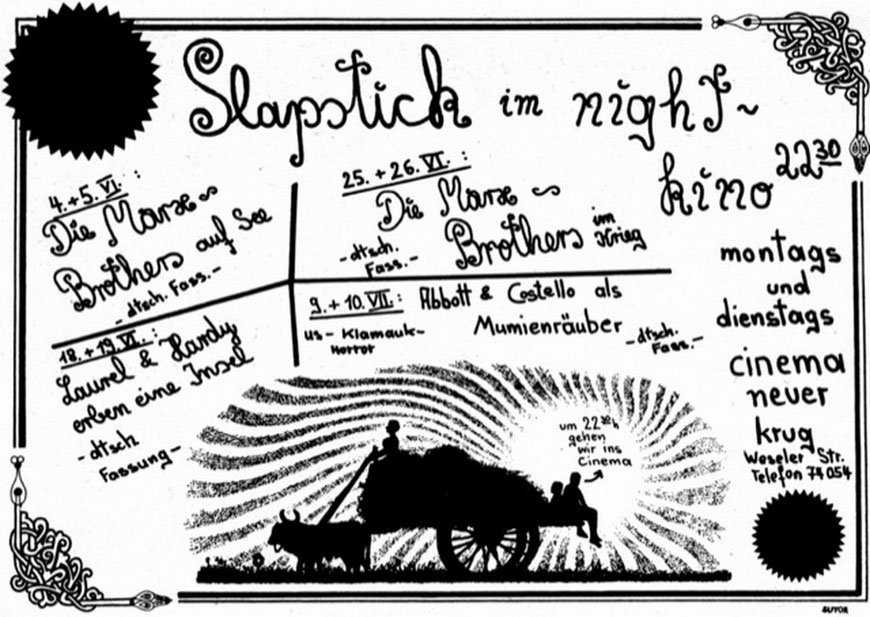 Slapstick im night~
kino 22³⁰
4.+5. VI.:
Die Marx~
Brothers auf See
-dtsch. Fass.-
25.+26. VI.:
Die Marx ~
Brothers im Krieg
-dtsch. Fass.-
18.+19. VI.:
Laurel & Hardy
erben eine Insel
-dtsch
Fassung-
9.+10. VII.: Abbott & Costello als
Mumienräuber
us-Klamauk-
Horror
-dtsch.
Fass.-
montags
und
dienstags
cinema
neuer
krug
Weseler Str.
Telefon 74054
um 22³⁰h
gehen
wir ins
Cinema
SUTOR